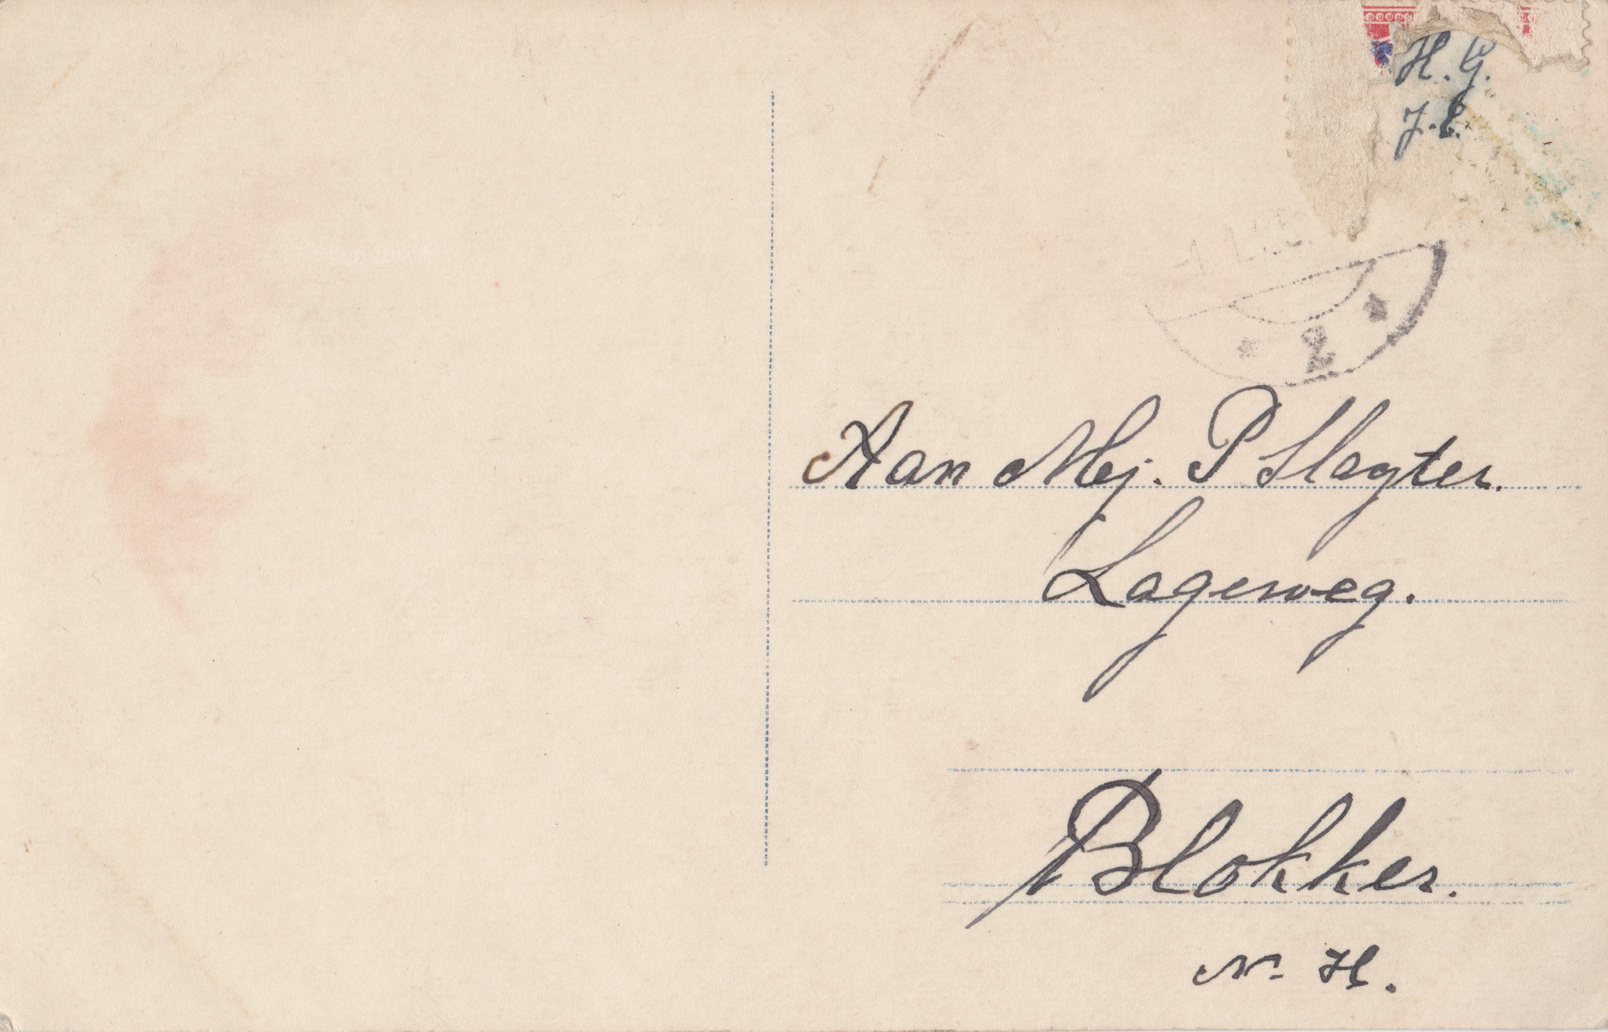 H. G.
J. E.
2
Aan Mej. P Slagter.
Lageweg.
Blokker.
N. H.